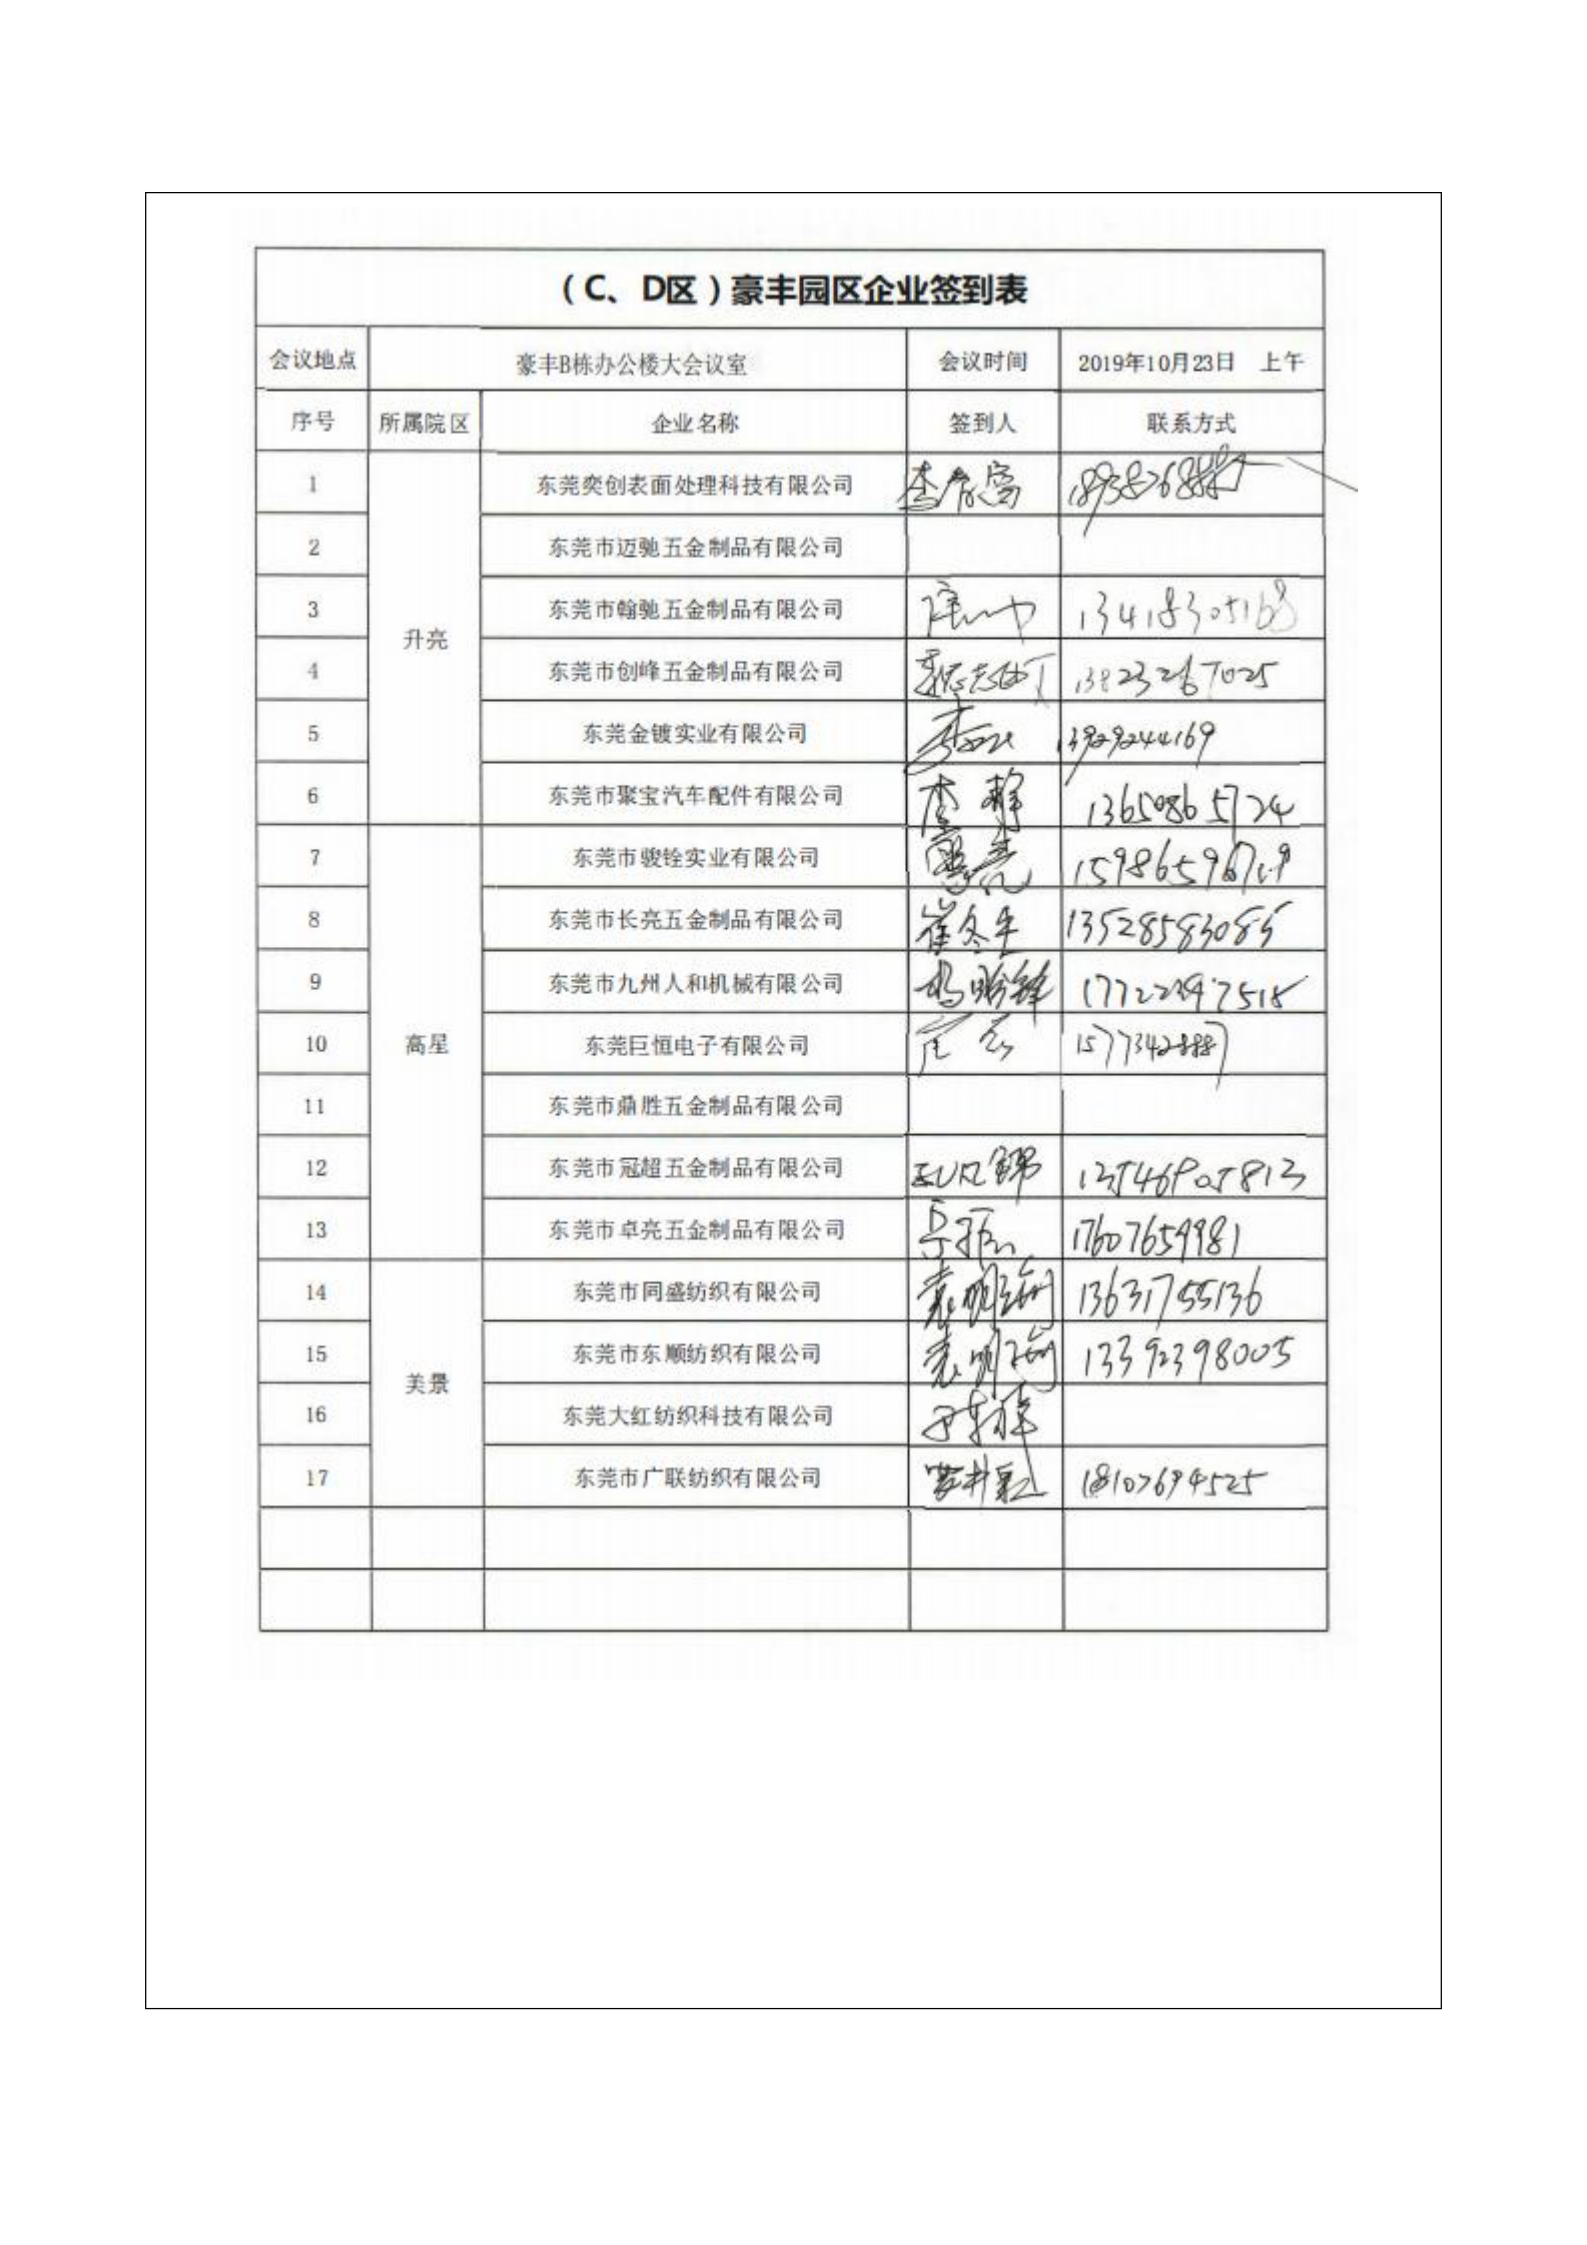 （C、D区）豪丰园区企业签到表
会议地点 豪丰B栋办公楼大会议室 会议时间 2019年10月23日 上午
序号 所属院区 企业名称 签到人 联系方式
1 东莞奕创表面处理科技有限公司
2 东莞市迈驰五金制品有限公司
3 东莞市翰驰五金制品有限公司 13418305168
升亮
4 东莞市创峰五金制品有限公司 13823267025
5 东莞金镀实业有限公司 13929244169
6 东莞市聚宝汽车配件有限公司 李静 13650865724
7 东莞市骏铨实业有限公司
8 东莞市长亮五金制品有限公司 崔冬生 13528583085
9 东莞市九州人和机械有限公司 17722347518
10 高星 东莞巨恒电子有限公司
11 东莞市鼎胜五金制品有限公司
12 东莞市冠超五金制品有限公司
13 东莞市卓亮五金制品有限公司 17607659981
14 东莞市同盛纺织有限公司 13631755136
15 东莞市东顺纺织有限公司 13392398005
美景
16 东莞大红纺织科技有限公司
17 东莞市广联纺织有限公司 18107694525